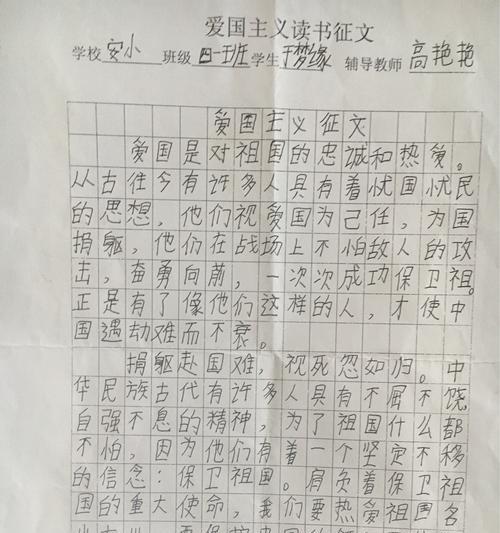 爱国主义读书征文
学校 安小 班级 四一班 学生 于梦缘 辅导教师 高艳艳
爱国主义征文
爱国是对祖国的忠诚和热爱。
从古往今有许多人具有着忧国忧民
的思想，他们视爱国为己任，为国
捐躯，他们在战场上不怕敌人的攻
击，奋勇向前，一次次成功保卫祖。
正是有了像他们这样的人，才使中
国遇劫难而不衰。
捐躯赴国难，视死忽如归。中
华民族古代有许多人具有不屈不饶
自强不息的精神，为了祖国什么都
不怕，因为他们有着一个坚定不移
的信念：保卫祖国。肩负着保卫祖
国的重大使命，我们要热爱祖国名